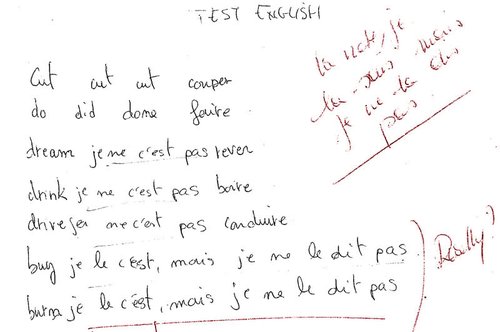 TEST ENGLISH
la note, je
la sais mais
je ne la dis
pas.
Cut cut cut couper
do did done faire
dream je ne c'est pas rever
drink je ne c'est pas boire
drive je ne c'est pas conduire
buy je le c'est, mais je ne le dit pas
burn je le c'est, mais je ne le dit pas
Really?